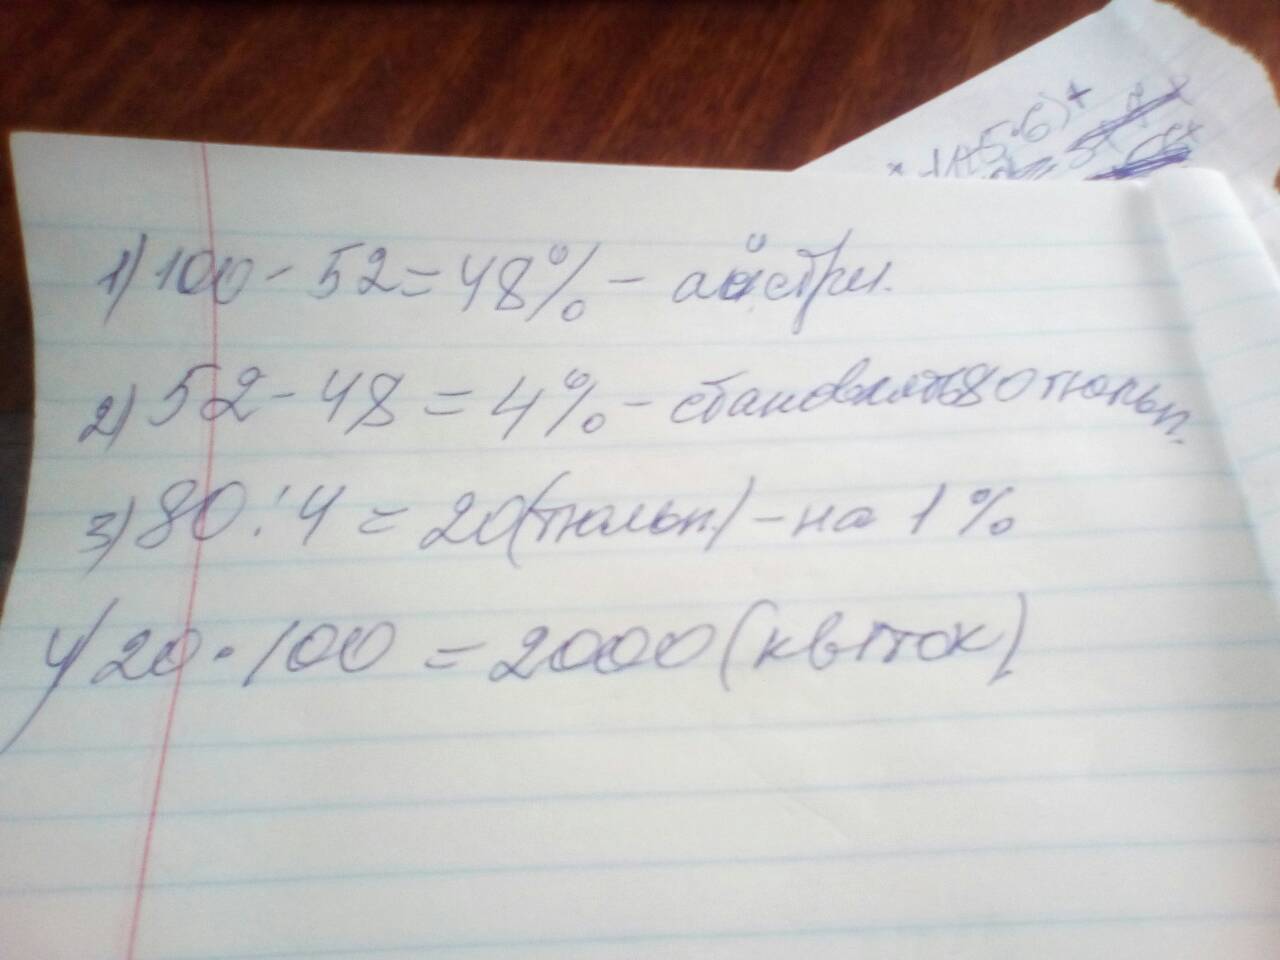 1) 100 - 52 = 48% - айстри.
2) 52 - 48 = 4% - становлять 80 тюльп.
3) 80 : 4 = 20 (тюльп.) - на 1%
4) 20 · 100 = 2000 (квіток)